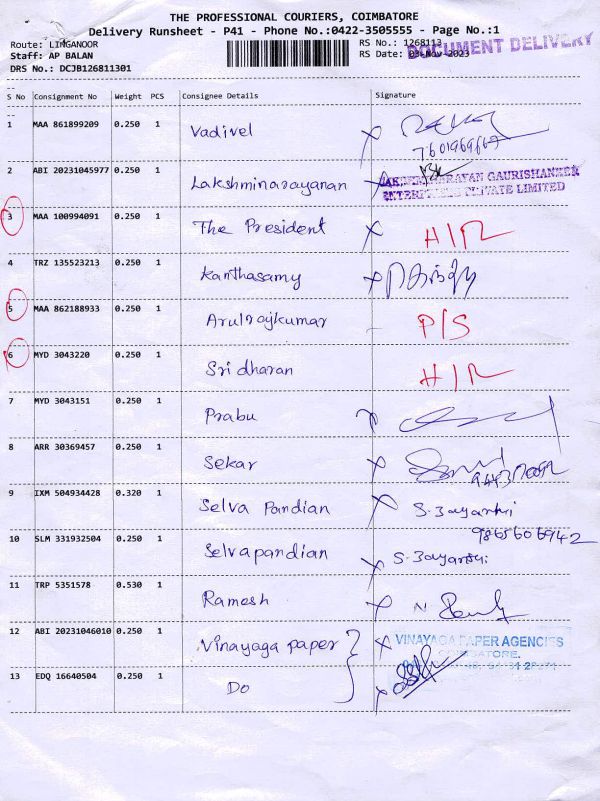 THE PROFESSIONAL COURIERS, COIMBATORE
Delivery Runsheet - P41 - Phone No.:0422-3505555 - Page No.:1
Route: LINGANOOR
Staff: AP BALAN
DRS No.: DCJB126811301
RS No.: 1268113
RS Date: 03-Nov-2023
DOCUMENT DELIVERY
S No Consignment No Weight PCS Consignee Details Signature
1 MAA 861899209 0.250 1 Vadivel
7601969669
2 ABI 20231045977 0.250 1 Lakshminarayanan
GAURISHANKER
ENTERPRISES PRIVATE LIMITED
3 MAA 100994091 0.250 1 The President H/R
4 TRZ 135523213 0.250 1 Kanthasamy
5 MAA 862188933 0.250 1 Arulrajkumar P/S
6 MYD 3043220 0.250 1 Sridharan H/R
7 MYD 3043151 0.250 1 Prabu
8 ARR 30369457 0.250 1 Sekar
9 IXM 504934428 0.320 1 Selva Pandian S. Jayanthi
9865606942
10 SLM 331932504 0.250 1 Selvapandian S. Jayanthi
11 TRP 5351578 0.530 1 Ramesh
12 ABI 20231046010 0.250 1 Vinayaga paper VINAYAGA PAPER AGENCIES
COIMBATORE.
13 EDQ 16640504 0.250 1 Do